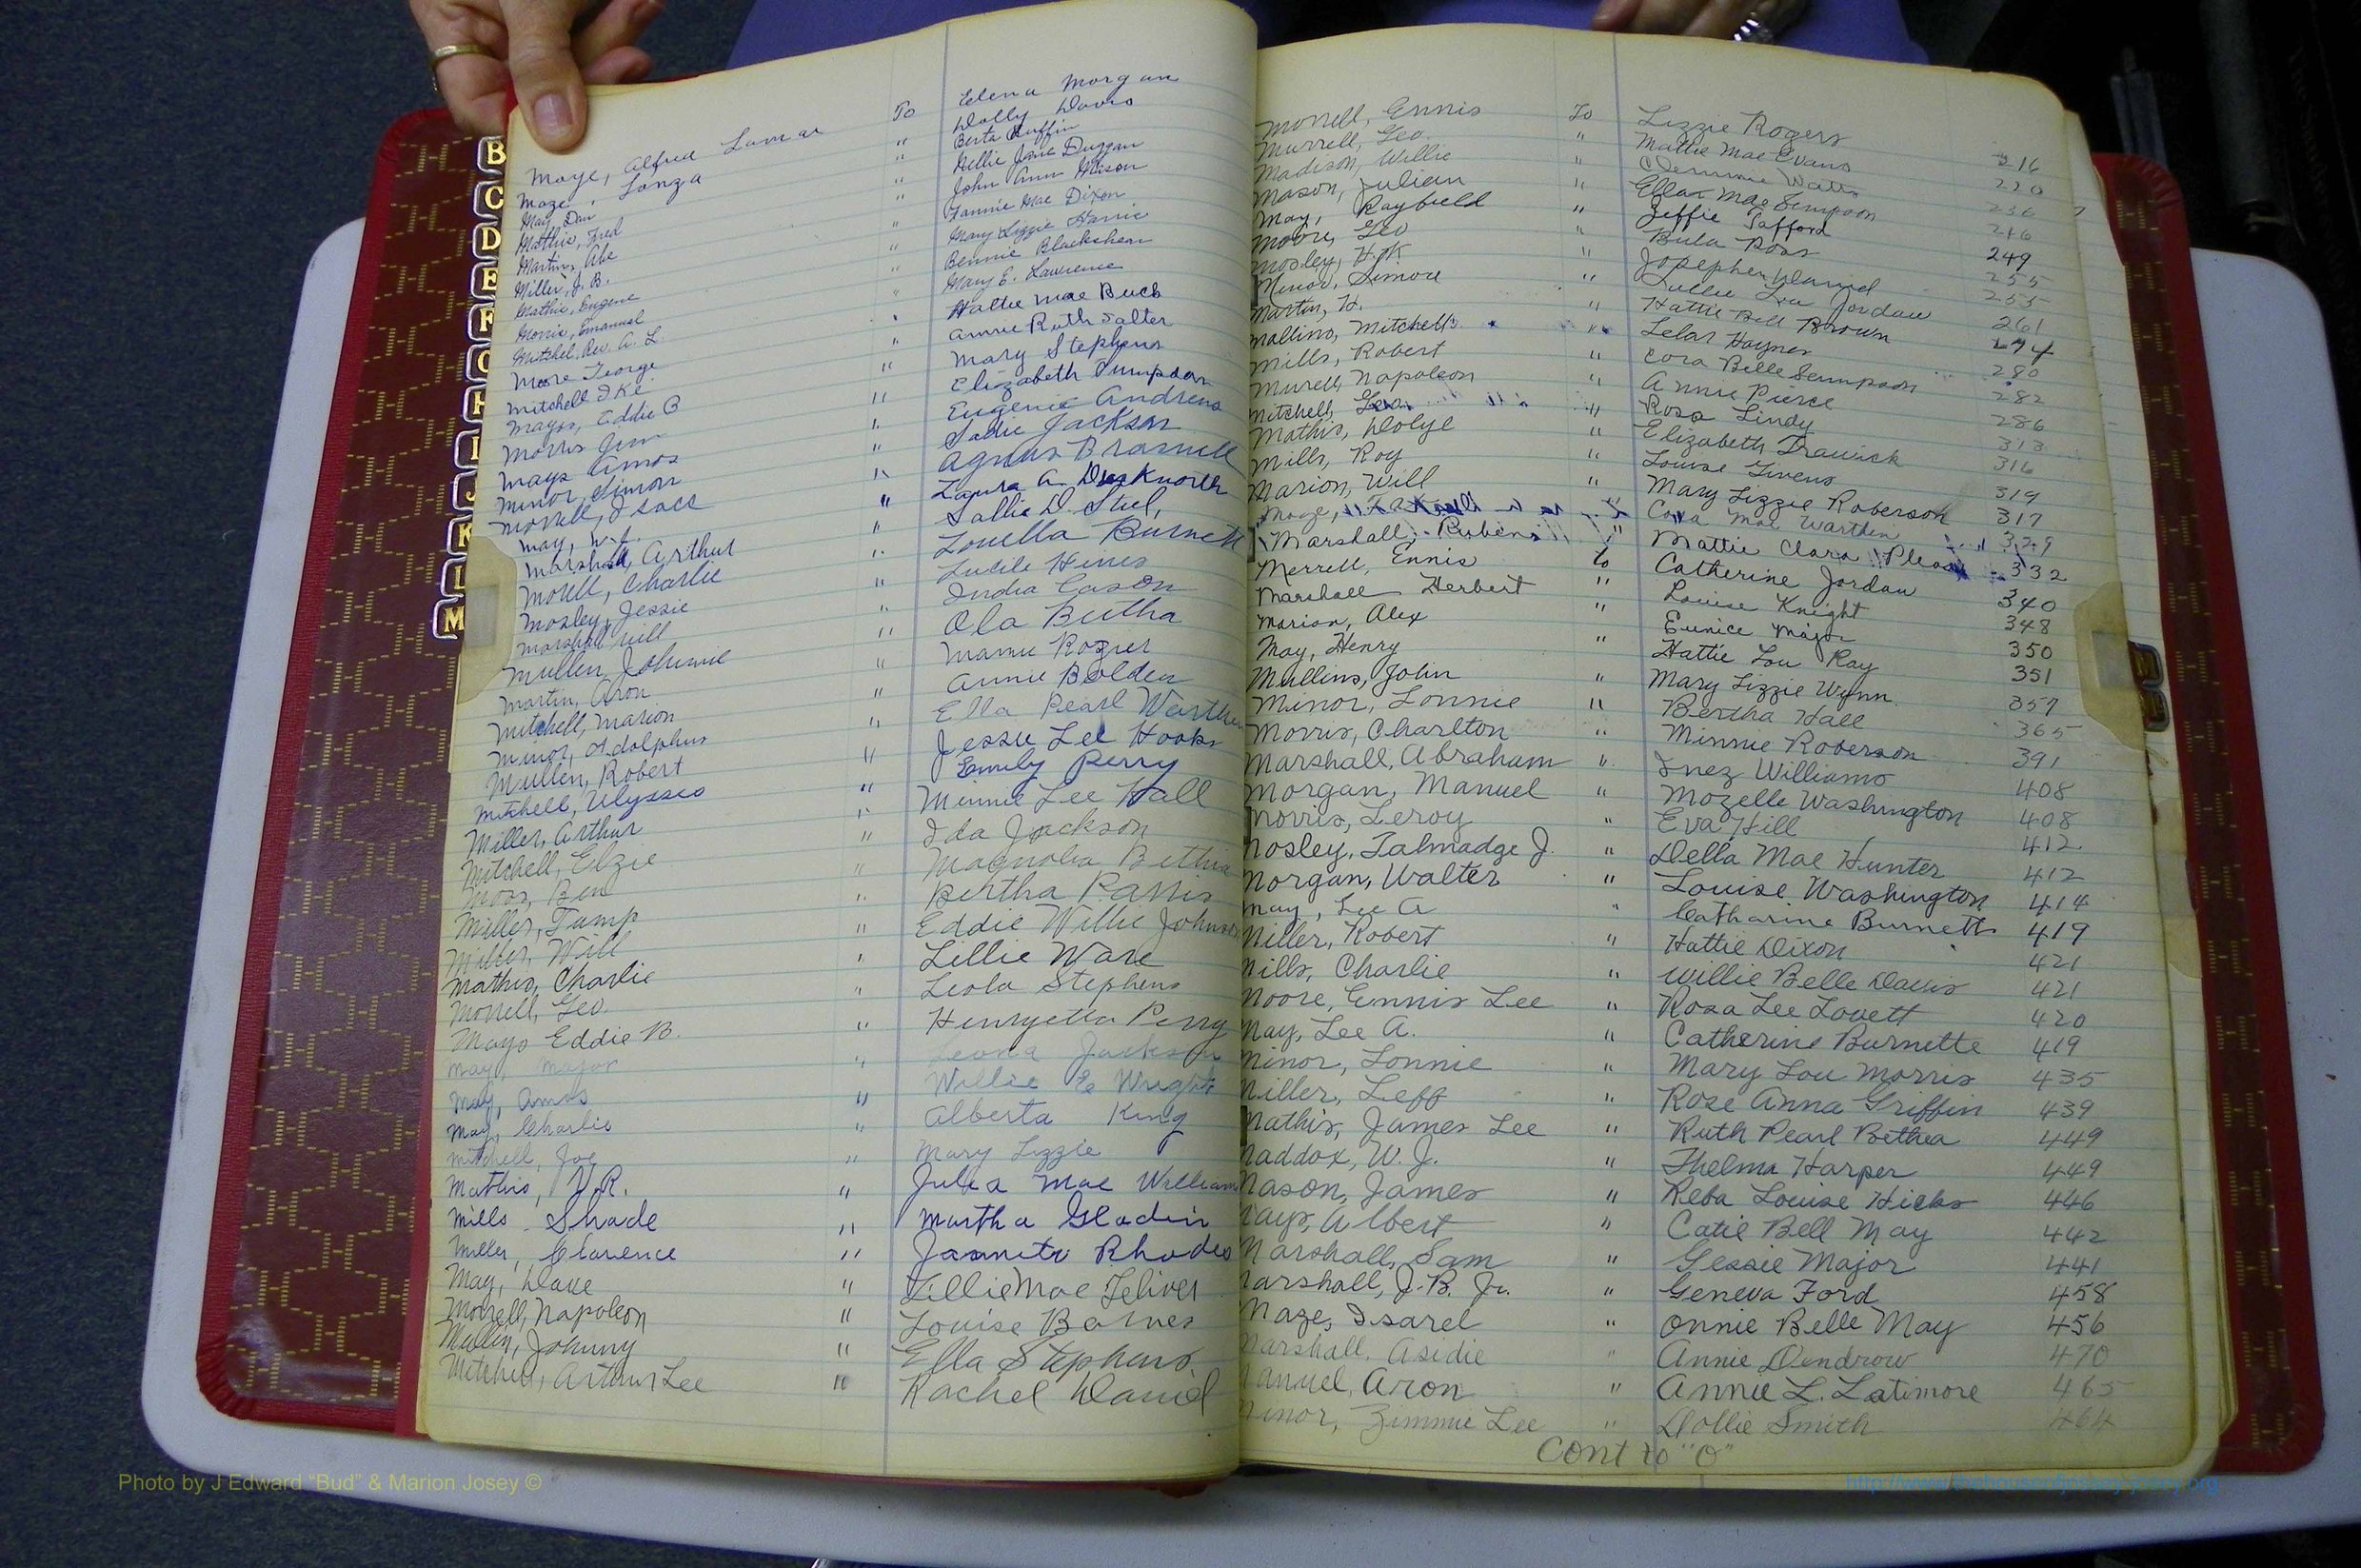 B
C
D
E
F
G
H
I
J
K
L
M
Maye, Alfred Lamar To Elena Morgan
Maze, Lonza " Dolly Davis
May, Dan " Berta Ruffin
Mathis, Fred " Nellie Jane Duggan
Martin, Abe " John Ann Mason
Miller, J. B. " Fannie Mae Dixon
Mathis, Eugene " Mary Lizzie Harris
Morris, Emanuel " Bennie Blackshear
Mitchel, Rev. A. L. " Mary E. Lawrence
Moore George " Mattie Mae Buck
Mitchell Ike " Annie Ruth Salter
Mays, Eddie B " Mary Stephens
Morris Jim " Elizabeth Simpson
Mays Amos " Eugenie Andrews
Minor, Simon " Sadie Jackson
Morrell, Isacc " Agnes Braswell
May, W. L. " Laura A. Duckworth
Marshall, Arthur " Sallie D. Steel,
Morell, Charlie " Louella Burnett
Mosley, Jessie " Lucile Hines
Marshall Will " India Cason
Mullen, Johnnie " Ola Butha
Martin, Aron " Mamie Rozier
Mitchell, Marion " Annie Bolden
Minor, Adolphus " Ella Pearl Warthen
Mullen, Robert " Jessie Lee Hooks
Mitchell, Ulysses " Emily Perry
Miller, Arthur " Minnie Lee Hall
Mitchell, Elzie " Ida Jackson
Moor, Ben " Magnolia Bethia
Miller, Tump " Bertha Parris
Miller, Will " Eddie Willie Johnson
Mathis, Charlie " Lillie Ware
Morrell, Geo. " Leola Stephens
Mays Eddie B. " Henryetta Perry
May, Major " Leona Jackson
May, Amos " Willie Wright
May, Charlie " Alberta King
Mitchell, Joe " Mary Lizzie
Mathis, V.R. " Julia Mae William
Mills Shade " Martha Gladin
Miller, Clarence " Jannete Rhodes
May, Dave " Lillie Mae Feliver
Morrell, Napoleon " Louise Barnes
Mullin, Johnny " Ella Stephens
Mitchell, Arthur Lee " Rachel David
Morrell, Ennis To Lizzie Rogers 216
Murrell, Geo. " Mattie Mae Evans 220
Madison, Willie " Clemmie Watts 236
Mason, Julian " Ellar Mae Simpson 246
May, Rayfield " Zeffie Safford 249
Moore, Geo " Bula Ross 255
Mosley, H.K. Josephen Daniel 255
Minor, Simore " Lullie Lou Jordan 261
Martin, H. " Hattie Bell Brown 274
Mallins, Mitchell " Lelar Haynes 280
Mills, Robert " Cora Belle Simpson 282
Murell, Napoleon " Annie Pierce 286
Mitchell, Geo. " Rosa Lindy 313
Mathis, Dolye " Elizabeth Trawick 316
Mills, Roy " Louise Givens 319
Marion, Will " Mary Lizzie Roberson 317
Maze, " Cora Mae Warthen 329
Marshall, Ruben " Mattie Clara 332
Merrell, Ennis to Catherine Jordan 340
Marshall Herbert " Louise Knight 348
Marion, Alex " Eunice Major 350
May, Henry " Hattie Lou Ray 351
Mullins, John " Mary Lizzie Wynn 357
Minor, Lonnie " Bertha Hall 365
Morris, Charlton " Minnie Roberson 391
Marshall, Abraham " Inez Williams 408
Morgan, Manuel " Mozelle Washington 408
Morris, Leroy Eva Hill 412
Mosley, Talmadge J. " Della Mae Hunter 412
Morgan, Walter " Louise Washington 414
May, Lee A " Catharine Burnett 419
Miller, Robert " Hattie Dixon 421
Mills, Charlie " Willie Belle Davis 421
Moore, Ennis Lee " Rosa Lee Lovett 420
May, Lee A. " Catherine Burnette 419
Minor, Lonnie " Mary Lou Morris 435
Miller, Leff " Rose Anna Griffin 439
Mathis, James Lee " Ruth Pearl Bethea 449
Maddox, W. J. " Thelma Harper 449
Mason, James " Reba Louise Hicks 446
Mays, Albert " Catie Bell May 442
Marshall, Sam " Gessie Major 441
Marshall, J. B. Jr. " Geneva Ford 458
Maze, Isarel " Onnie Belle May 456
Marshall, Asidie " Annie Dendrow 470
Manuel, Aron " Annie L. Latimore 465
Minor, Zimmie Lee " Dollie Smith 464
Cont to "O"
Photo by J Edward “Bud” & Marion Josey ©